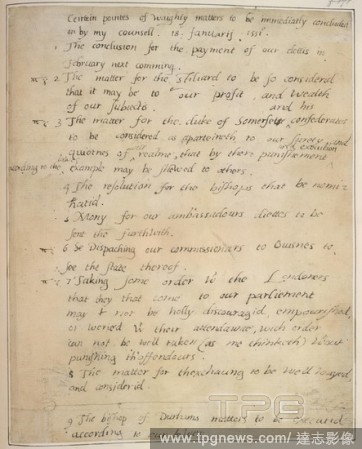 Certein pointes of waighty matters to be immediatly concluded
on by my counsell. 18. Januarii. 1551.
1 The conclusion for the payment of our dettes in
February next comming.
2. The matter for the stiliard to be so considered
that it may be to our profit and wealth
of our subiects. and his
3 The matter for the duke of Somersets confederates
to be considered as aparteineth to our surety and
quietnes of our realme, that by there punishment
according to the lawes example may be shewed to others.
4 The resolution for the bishops that be nomi-
nated.
5 Mony for our ambassadours diettes to be
sent the furthwith.
6 Dispaching our commissionars to Guisnes to
see the state thereof.
7 Taking some order with the Londoners
that they that come to our parliement
may not be holly discouragid, empoverished,
or weried with their attendaunce, wich order
can not be well taken (as me thinketh) without
punishing th'offendours.
8 The matter for thexchaung to be well waged
and considerid.
9 The bishop of Durhams matters to be executid
according to
TPG
www.tpgnews.com/ 達志影像